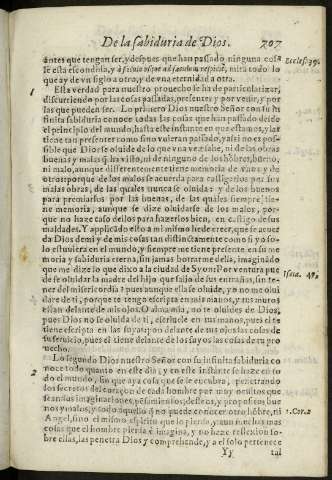 De la sabiduria de Dios. 207
antes que tengan ser, y despues que han passado ninguna cosa
se esta escondida, y à sæculo usque ad sæculum respicit, mira todo lo
que ay de vn siglo a otro, y de vna eternidad a otra.
Eccles. 39.
1
Esta verdad para nuestro prouecho se ha de particularizar,
discurriendo por las cosas passadas, presentes y por venir, y por
las que pueden ser. Lo primero Dios nuestro Señor con su in
finita sabiduria conoce todas las cosas que han passado desde
el principio del mundo, hasta este instante en que estamos, y las
tiene tan presentes como sino vuieran passado, y assi no es pos
sible que Dios se oluide de lo que vna vez sabe, ni de las obras
buenas y malas q̃ ha visto, ni de ninguno de los hõbres, bueno,
ni malo, aunque differentemente tiene memoria de vnos y de
otros: porque de los malos se acuerda para castigarlos por sus
malas obras, de las quales nunca se oluida: y de los buenos
para premiarlos por las buenas, de las quales siempre tie-
ne memoria, aunque se dize oluidarse de los malos, por-
que no haze caso dellos para hazerlos bien, en castigo de sus
maldades. Y applicado esto a mi mismo he de creer, que se acuer
da Dios de mi y de mis cosas tan distinctamente como si yo so-
lo estuuiera en el mundo, y siempre me tiene presente en su me
moria y sabiduria eterna, sin jamas borrarme della, imaginado
que me dize lo que dixo a la ciudad de Syon: Por ventura pue
de se oluidar la madre del hijo que salio de sus entrañas, sin te-
ner del misericordia? pues aunque ella se oluide, yo no me olui
dare de ti, porque te tengo escrita en mis manos, y tus muros
estan delante de mis ojos. O alma mia, no te oluides de Dios,
pues Dios no se oluida de ti, escriuele en tus manos, pues el te
tiene escrita en las suyas: pon delante de tus ojos las cosas de
su seruicio, pues el tiene delante de los suyos las cosas de tu pro
uecho.
Isaia. 49.
2
Lo segundo Dios nuestro Señor con su infinita sabiduria co
noce todo quanto en este dia, y en este instante se haze en to
do el mundo, sin que aya cosa que se le encubra, penetrando
los secretos del coraçon de cada hombre por muy ocultos que
sean sus imaginaciones, pẽsamiẽtos, y desseos, y proposſitos bue
nos y malos, y todo aquello q̃ no puede conocer otro hõbre, ni
Angel, sino el mismo espiritu que lo piensa, y aun muchas mas
cosas que el hombre piensa e imagina, y no haze reflexion so-
bre ellas, las penetra Dios y comprehende, y a el solo pertenece
1. Cor. 2
Yy tal